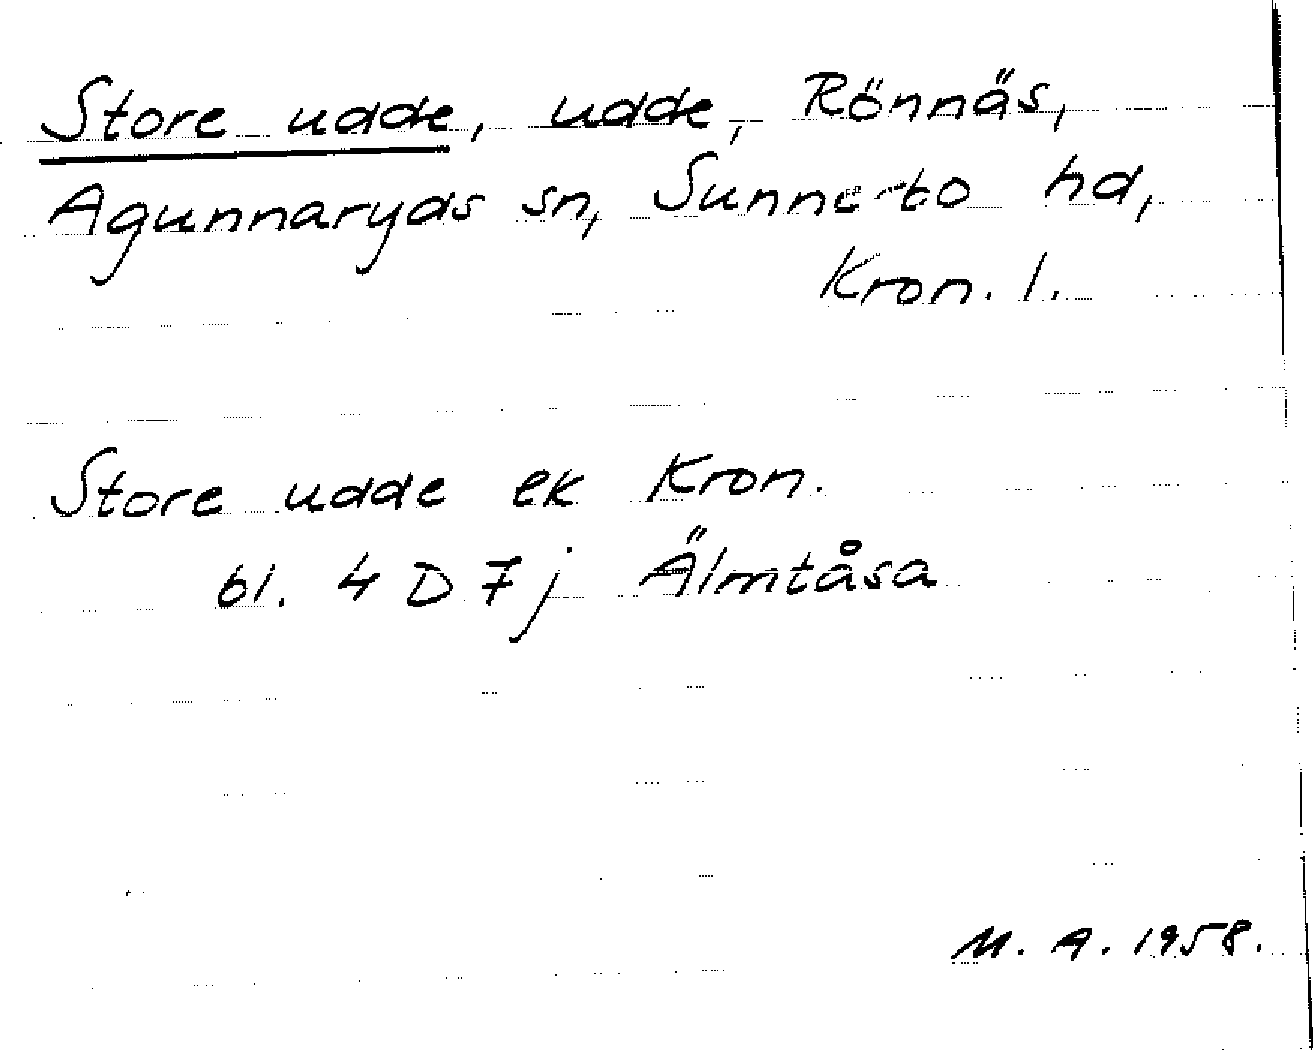 Store udde, udde, Rönnäs,
Agunnaryds sn, Sunnerbo hd,
Kron. l.
Store udde ek Kron.
bl. 4 D 7 j Älmtåsa
M. A. 1958.